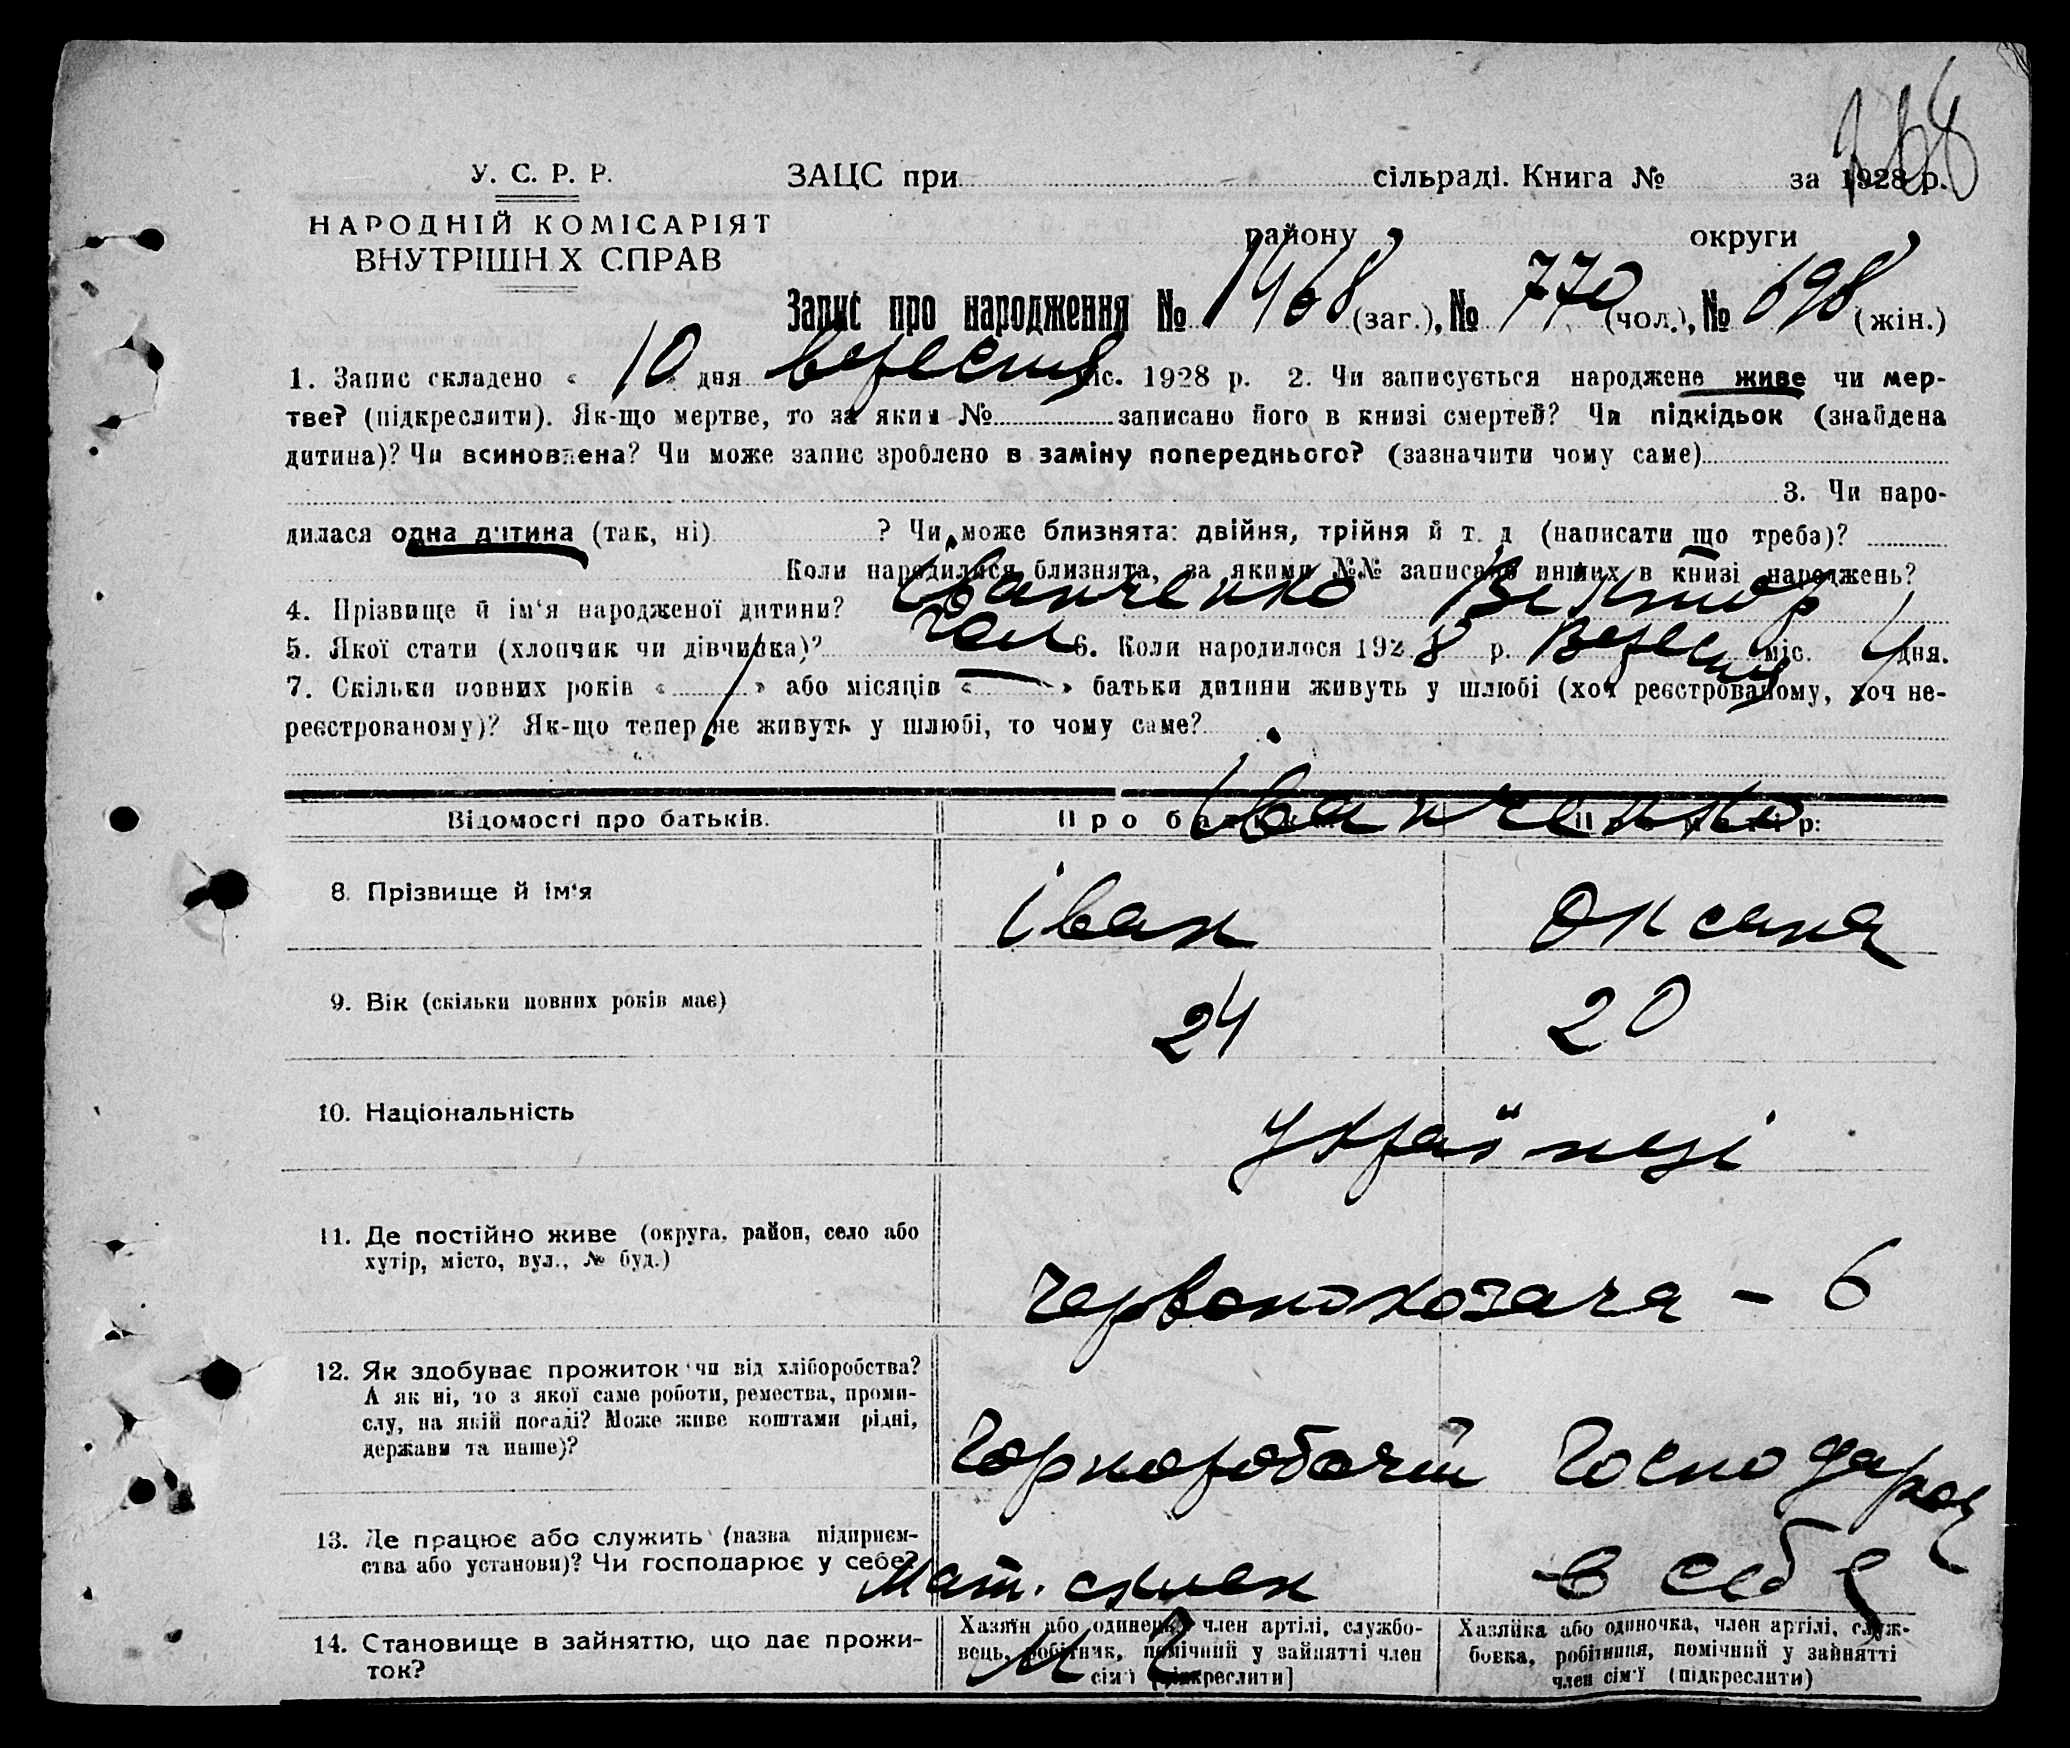 768
У. С. Р. Р.
НАРОДНІЙ КОМІСАРІЯТ
ВНУТРІШН Х СПРАВ
ЗАЦС при сільраді. Книга № за 1928 р.
району округи
Запис про народження № 1468 (заг.), № 770 (чол.), № 698 (жін.)
1. Запис складено « 10 » дня вересня міс. 1928 р. 2. Чи записується народжене живе чи мер-
тве? (підкреслити). Як-що мертве, то за яким № записано його в книзі смертей? Чи підкідьок (знайдена
дитина)? Чи всиновлена? Чи може запис зроблено в заміну попереднього? (зазначити чому саме)
3. Чи наро-
дилася одна дитина (так, ні) ? Чи може близнята: двійня, трійня й т. д (написати що треба)?
Коли народилися близнята, за якими №№ записано инших в книзі народжень?
4. Прізвище й ім‘я народженої дитини? Іванченко Віктор
5. Якої стати (хлопчик чи дівчинка)? чол 6. Коли народилося 1928 р. Вересня міс. 4 дня.
7. Скільки повних років « » або місяців « — » батьки дитини живуть у шлюбі (хоч реєстрованому, хоч не-
реєстрованому)? Як-що тепер не живуть у шлюбі, то чому саме?
Відомості про батьків. Про батька: Про матір:
Іванченко
8. Прізвище й ім‘я Іван Оксана
9. Вік (скільки повних років має) 24 20
10. Національність Українці
11. Де постійно живе (округа, район, село або
хутір, місто, вул., № буд.)
Червонокозача – 6
12. Як здобуває прожиток чи від хліборобства?
А як ні, то з якої саме роботи, ремества, проми-
слу, на якій посаді? Може живе коштами рідні,
держави та инше)?
Чорноробочий Господарка
13. Де працює або служить (назва підприєм-
ства або установи)? Чи господарює у себе?
Мат. склад в себе
14. Становище в зайняттю, що дає прожи-
ток?
Хазяїн або одинець, член артілі, службо-
вець, робітник, помічний у зайнятті член
сім‘ї [підкреслити]
Хазяйка або одиночка, член артілі, служ-
бовка, робітниця, помічний у зайнятті
член сім‘ї (підкреслити)